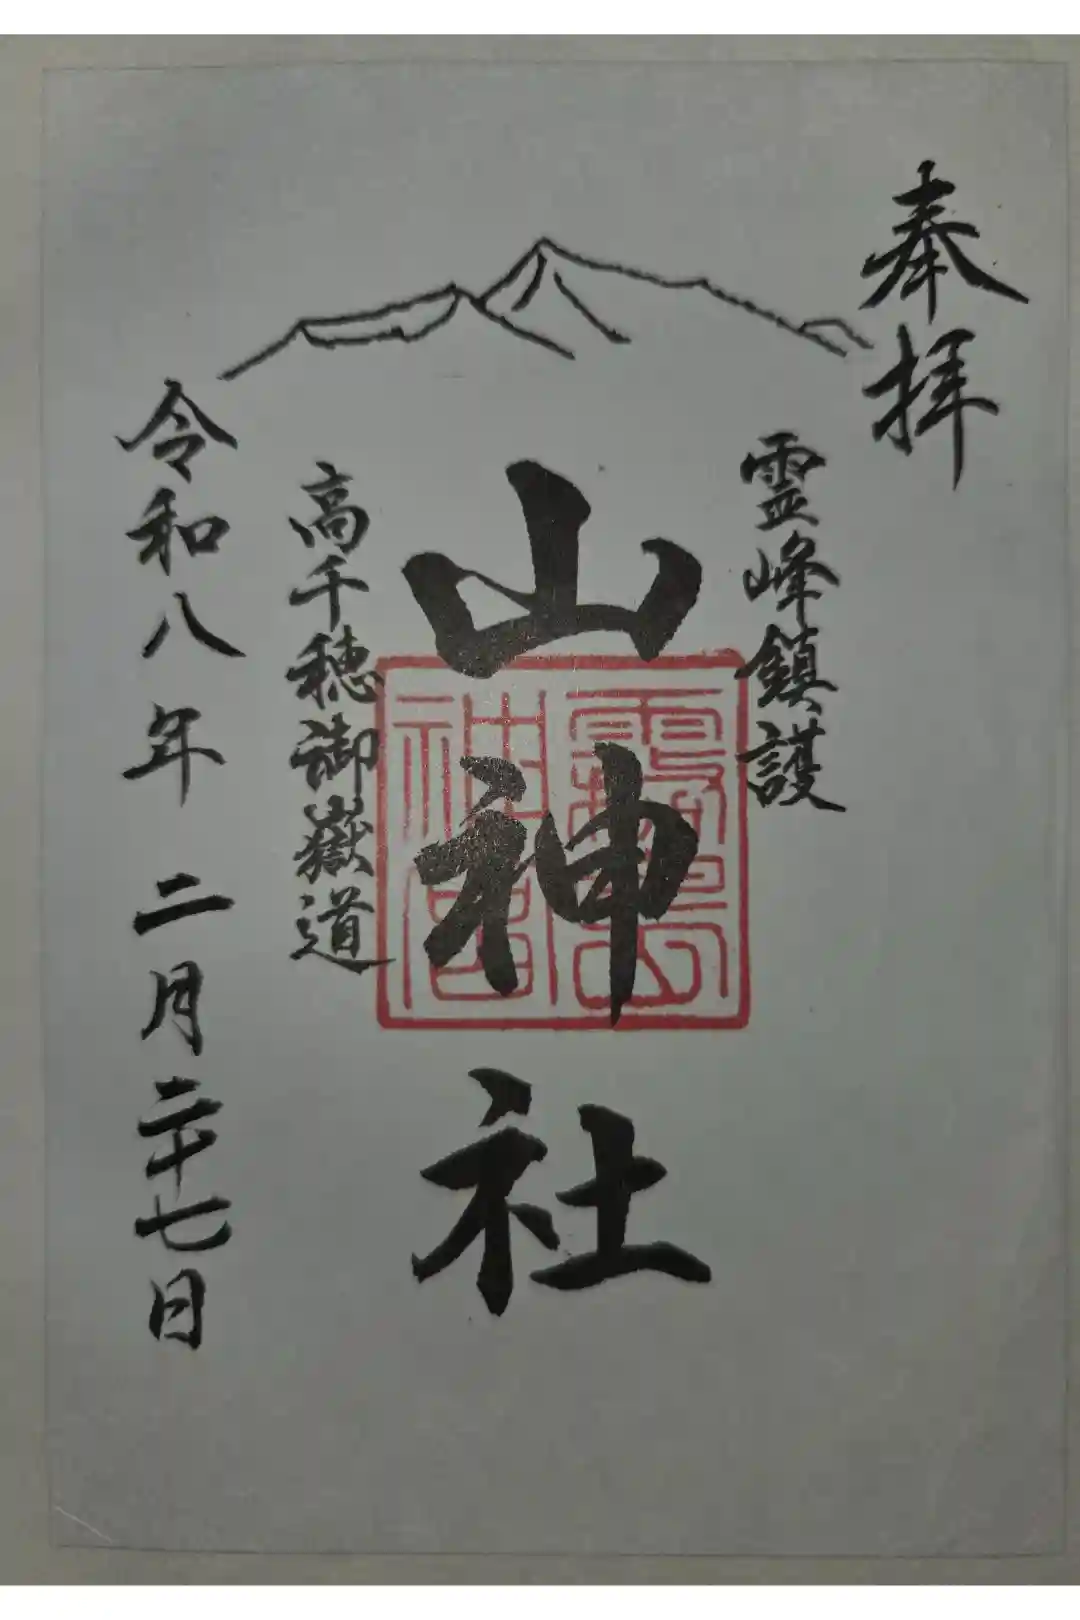 奉拝
霊峰鎮護
山神社
高千穂御嶽道
令和八年 二月二十七日